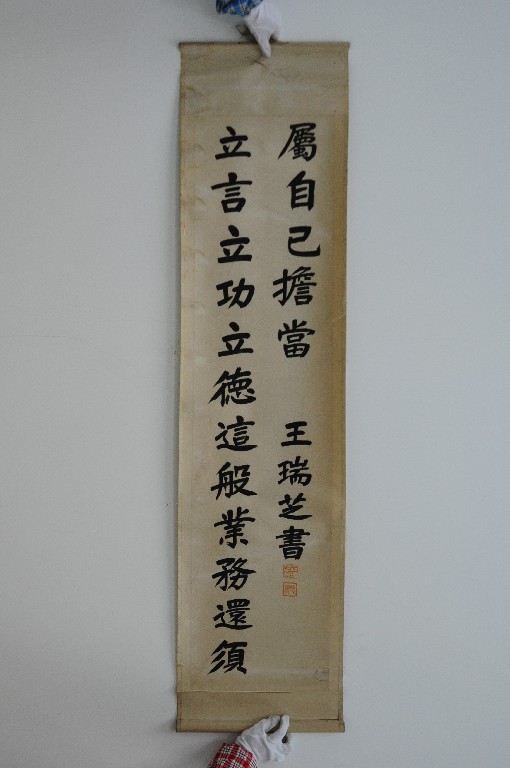 立言立功立德這般業務還須
屬自己擔當 王瑞芝書